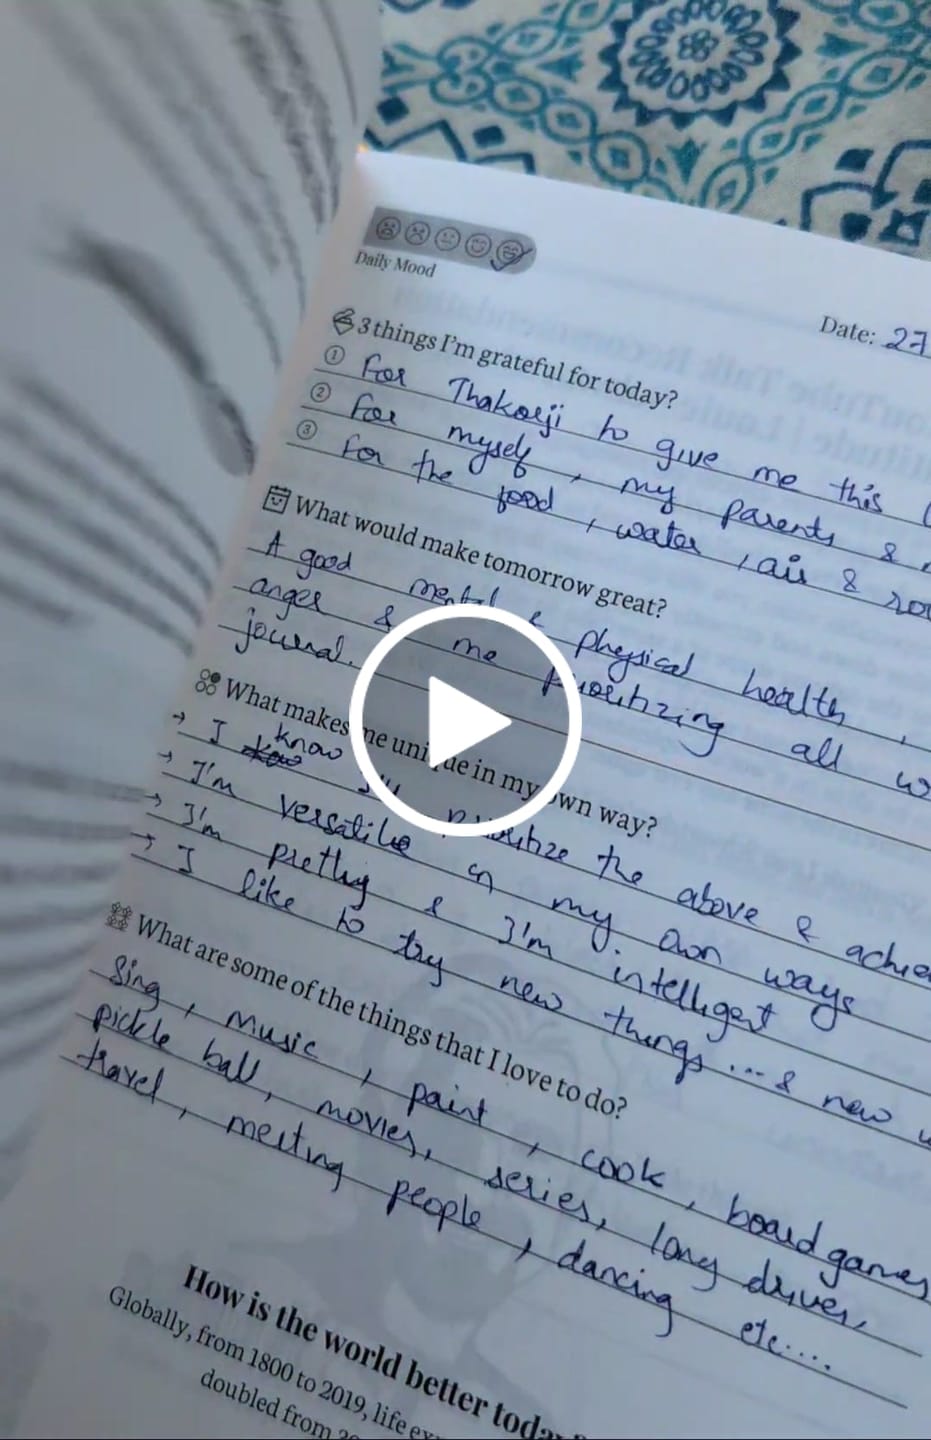 Daily Mood
Date: 27
3 things I'm grateful for today?
① For Thakorji to give me this
② For myself, my parents &
③ For the food, water, air &
What would make tomorrow great?
A good mental & physical health,
anger & me prioritizing all
journal.
What makes me unique in my own way?
→ I know I'll prioritize the above &
→ I'm versatile in my own ways
→ I'm pretty & I'm intelligent
→ I like to try new things...& new
What are some of the things that I love to do?
Sing, music, paint, cook, board games
pickle ball, movies, series, long drives,
travel, meeting people, dancing etc....
How is the world better today?
Globally, from 1800 to 2019, life
doubled from